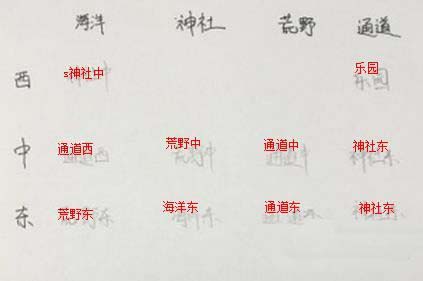 海洋 神社 荒野 通道
西 s神社中 乐园
中 通道西 荒野中 通道中 神社东
东 荒野东 海洋东 通道东 神社东